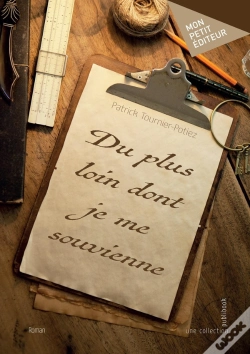 MON
PETIT
ÉDITEUR
Patrick Tournier-Potiez
Du plus
loin dont
je me
souvienne
Roman
une collection
publibook